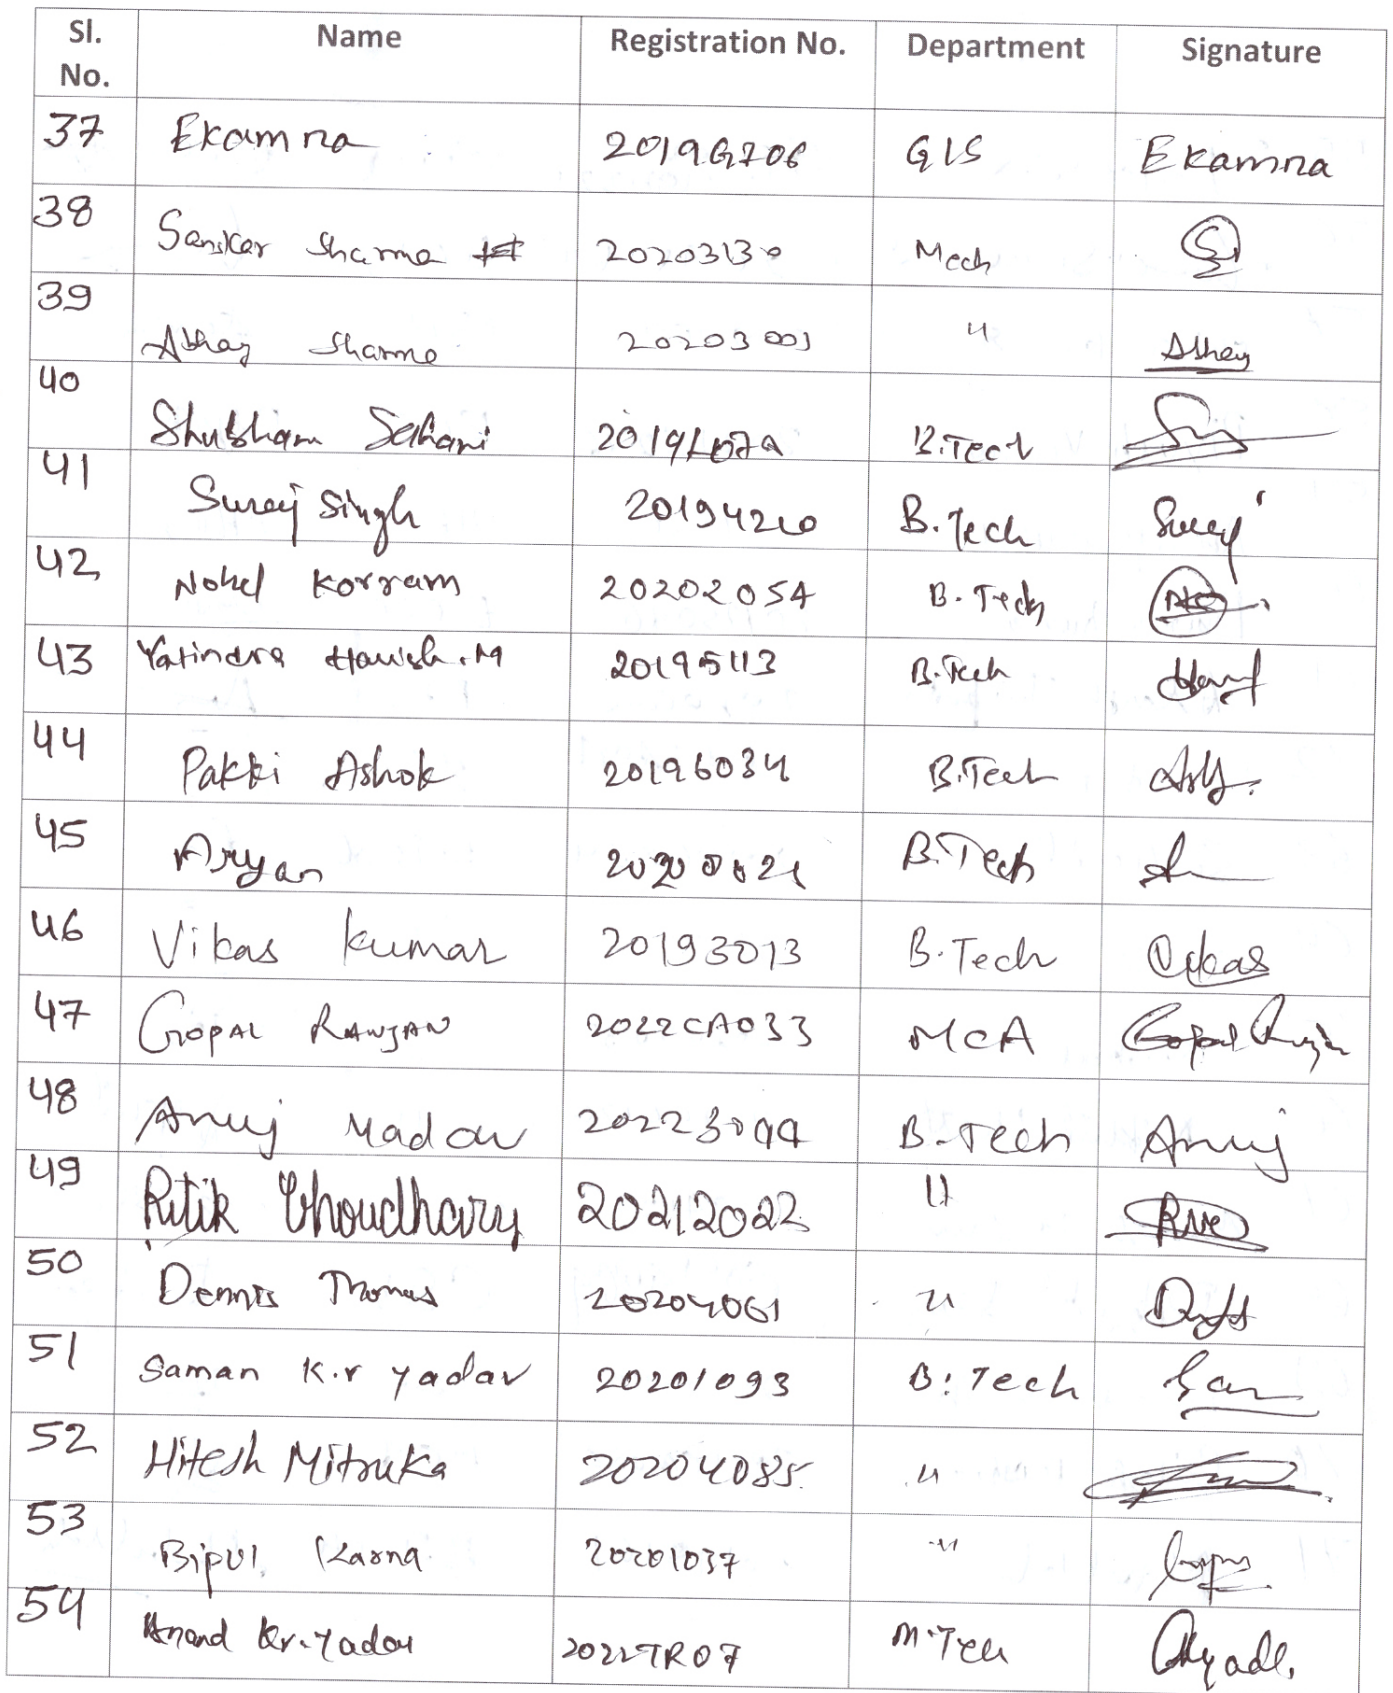 Sl. No. Name Registration No. Department Signature
37 Ekamra 2019G706 GIS Ekamra
38 Sanskar Sharma 20203130 Mech
39 Abhay Sharma 20203003 " Abhay
40 Shubham Sahani B.Tech
41 Suraj Singh 20194210 B.Tech Suraj
42 Nohel Korram 20202054 B.Tech
43 Yatindra Harish.M 20195113 B.Tech
44 Pakki Ashok 20196034 B.Tech
45 Aryan B.Tech
46 Vikas Kumar 20193013 B.Tech Vikas
47 GOPAL RANJAN 2022CA033 MCA Gopal Ranjan
48 Anuj Yadav 20223099 B.Tech Anuj
49 Ritik Choudhary 20212022 "
50 Dennis Thomas 20204061 "
51 Saman K.r yadav 20201093 B.Tech
52 Hitesh Mitruka 20204085 "
53 Bipul Karna 20201037 "
54 Anand Kr. Yadav 2022TR07 M.Tech